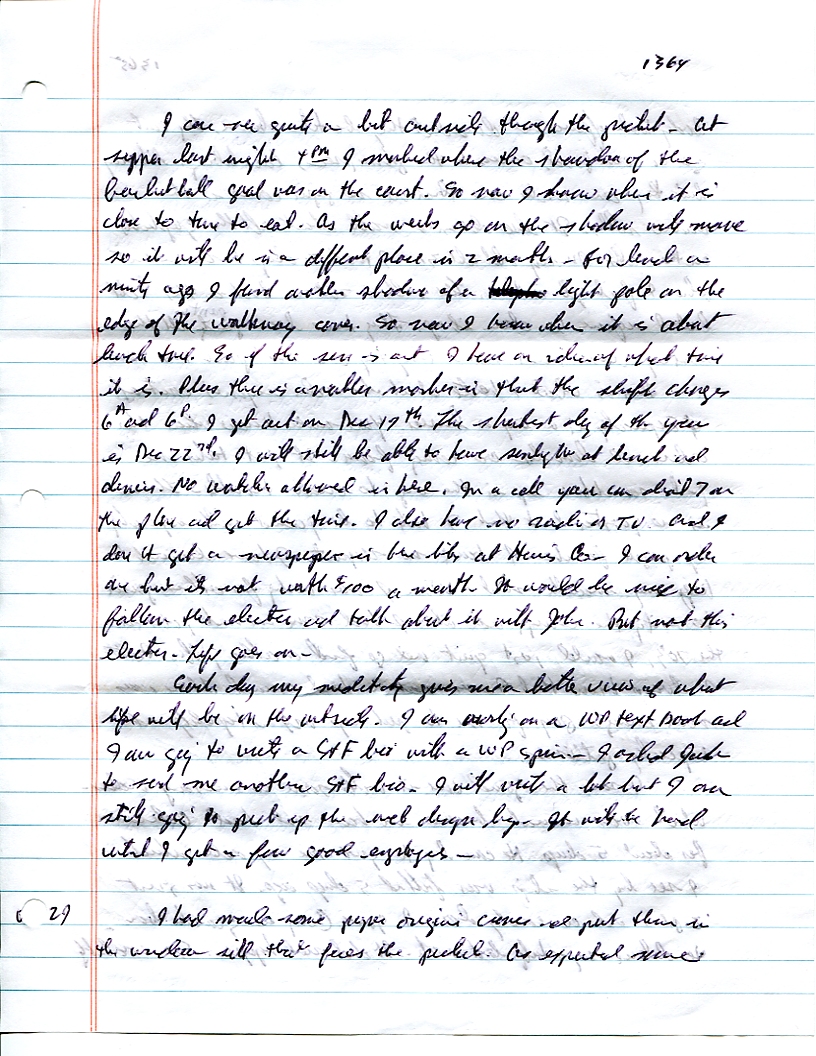 1364
I can see quite a bit outside though the picket - At
supper last night 4 PM I marked where the shawdow of the
basketball goal was on the court. So now I know when it is
close to time to eat. As the weeks go on the shadow will move
so it will be in a diffent place in 2 months - For lunch a
minute ago I found another shadow of a light pole on the
edge of the walkway cover. So now I know when it is about
lunch time. So if the sun is out I have an idea of what time
it is. Plus there is another marker in that the shift changes
6A and 6P. I get out on Dec 17th The shortest day of the year
is Dec 22nd. I will still be able to have sunlight at lunch and
dinner. No watches allowed in here. In a cell you can dial 7 on
the phone and get the time. I also have no radio or TV and I
don't get a newspaper in here like at Harris Co- I can order
one but its not worth $100 a month It would be nice to
follow the election and talk about it with John. But not this
election - Life goes on -
Each day my meditation gives me a better view of what
life will be on the outside. I am working on a WP text book and
I am going to write a S&F bio with a WP spin - I asked
to send me another S&F bio - I will write a lot but I am
still going to pick up the web design - It will be hard
until I get a few good employees -
29 I had made some paper origini cranes and put them in
the window sill that faces the picket. As expected some